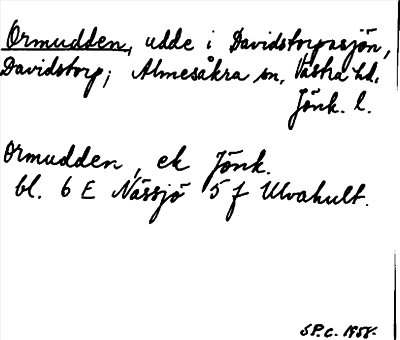 Ormudden, udde i Davidstorpasjön,
Davidstorp; Almesåkra sn, Västra hd.
Jönk. l.
Ormudden, ek Jönk.
bl. 6 E Nässjö 5 f Ulvahult.
S P. c. 1958.